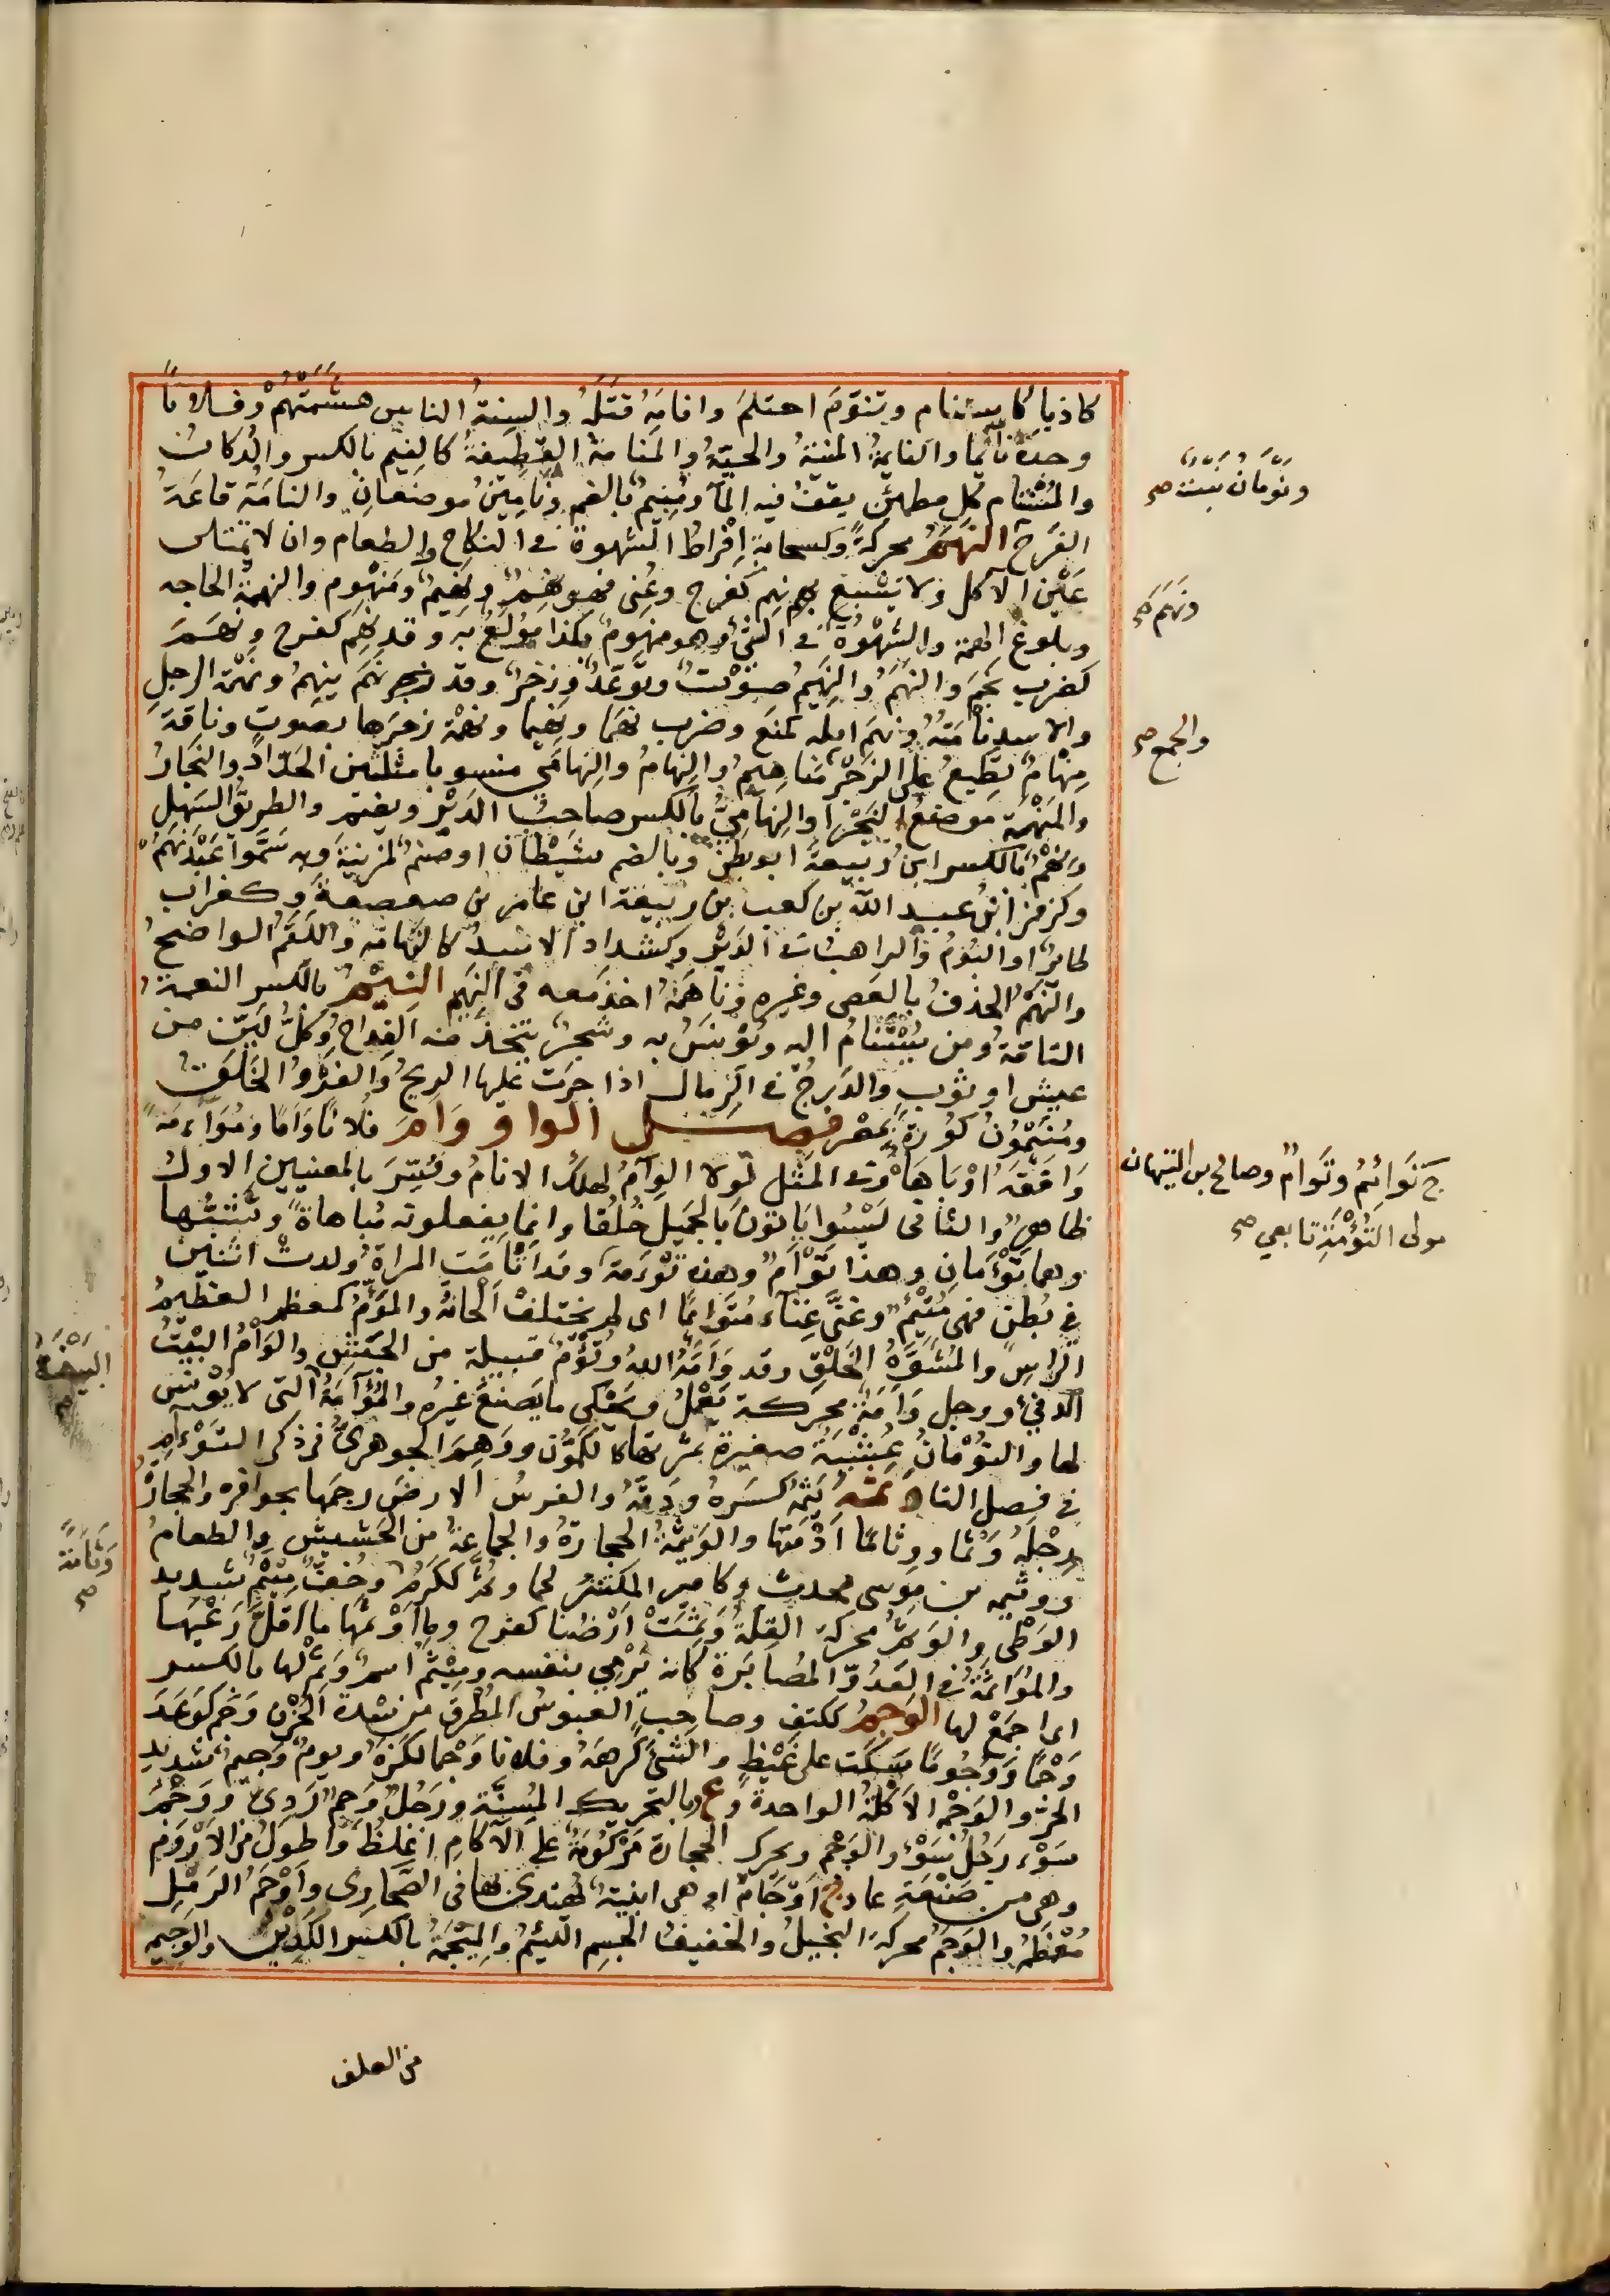 كاذبا كاستنام وتنوّم احتلم وانامه قتله والسنة الناس هشمتهم وفلانا
وجده نائما والنايمة المنية والحية والمنامة القطيفة كالنيم بالكسر والدكان
والمُسْتَنام كل مطمئن يقف فيه الماء ومُنِيم بالضم ونامين موضعان والنامة قاعة
الفرج النهم محركةً وكسحابة افراط الشهوة في الطعام وان لا تمتلئ
عين الآكل ولا يشبع نهم كفرح وعُنى فهو نهم ونهيم ومنهوم والنهمة الحاجه
وبلوغ الهمة والشهوة في الشئ وهو منهوم بكذا مولع به وقد نهم كفرح ونهم
كضرب نحم والنهم والنهيم صوت وتوعّد وزجر وقد نهم ينهم ونهمة الرجل
والاسد نأمته ونهم ابله كمنع وضرب نهما ونهيما ونهمة زجرها بصوت وناقة
مِنهام تطيع على الزجر مناهيم والنهام والنهامي منسوبا مثلثين الحدّاد والنجار
والمنهمة موضع النجر والنهامى بالكسر صاحب الدير ويضم والطريق السهل
ونهم بالكسر ابن ربيعة ابو بطن وبالضم شيطان او صنم لمزينة وبه سَمّوا عَبْد نهم
وكزفر ابن عبد الله بن كعب بن ربيعة ابن عامر بن صعصعة وكغراب
طاير او البوم والراهب في الدير وكشداد الاسد كالنهامة واللقم الواضح
والنهم الحذف بالعصى وغيره وناهمه اخذ معه في النهم النيم بالكسر النعمة
التامة ومن يُسْتَنام اليه ويؤنس به وشجر يتخذ منه القداح وكل ليّن من
عيش او ثوب والدرج في الرمال اذا جرت عليها الريح والفرو الخلق
ومنيمون كورة بمصر فصل الواو وَاَم فلانا وِآما ومُوَاءمة
وافقه او باهاه وفي المثل لولا الوئام لهلك الانام وفُسِّر بالمعنيين الاول
ظاهر والثاني ليسوا ياتون بالجميل خُلُقا وانما يفعلونه مُباهاةً وتشبّها
وهما توءمان وهذا توأم وهذه توءمة وقد اتأمت المراة ولدت اثنين
في بطن فهي مُتْئِم وغنّى غِناء متوائما اى لم يختلف ألحانه والموَأّم كمعظم العظيم
الراس والمُشَوَّه الخلق وقد وَأّمه الله وتؤم قبيلة من الحبش والوأم البيت
الدفئ ورجل وَأمة محركة يعمل ويحكى ما يصنع غيره والموأمة التى لا قونس
لها والتؤمان عُشبة صغيرة ثمرتها كالكمّون ووَهِمَ الجوهرىّ فذكر التوءم
في فصل التاء وثمه يثمه كسره ودَقّه والفرس الارض رجمها بحوافره والحجارة
رجله وَثما ووثاما اَدْمَتها والوثيمة الحجارة والجماعة من الحشيش والطعام
ووثيمه بن موسى محدث وكامير المكتنز لحما وثم ككَرُم وخف ميثم شديد
الوطئ والوثم محركة القلة وَثِمَتْ ارضنا كفرح وما اوثمها ما اقلّ رَعْيها
والمواثمة في العَدْو المُضابَرة كانه يَرْمي بنفسه وميثم اسم وثم لها بالكسر
اى اجْمَعْ لها الوجم ككتف وصاحب العبوس المُطْرِق من شدة الحُزْن وَجم كوَعَدَ
وَجْما ووُجُوما سَكَت على غَيْظٍ والشئ كَرِهَه وفلانا وَجْما لكَزه ويوم وَجِيم شديد
الحر والوَجْم الاَكْلة الواحدة وع وبالتحريك المُسِنّة ورَجُل وَجم رَدِىّ ووَجْم
سَوْء رَجُل سَوْء والوَجْم ويحرك الحجارة مَرْكُومَة على الآكام اغلظ واطول من الاُرُوم
وهي من صَنْعَة عاد ج اَوْجام او هى ابنية يُهتدى بها في الصحارى واَوْجَم الرَمْل
مُعْظَمه والوَجم محركة البخيل والخفيف الجسم اللئيم والمِيْجَمة بالكسر الكُدين والوجيمة
من العلف
ونَوْمان نبت صح
ونَهم صح
والجمع صح
ج توائم وتُوام وصالح بن النبهان
مولى التوأمة تابعي صح
البيضة صح
وثامة صح